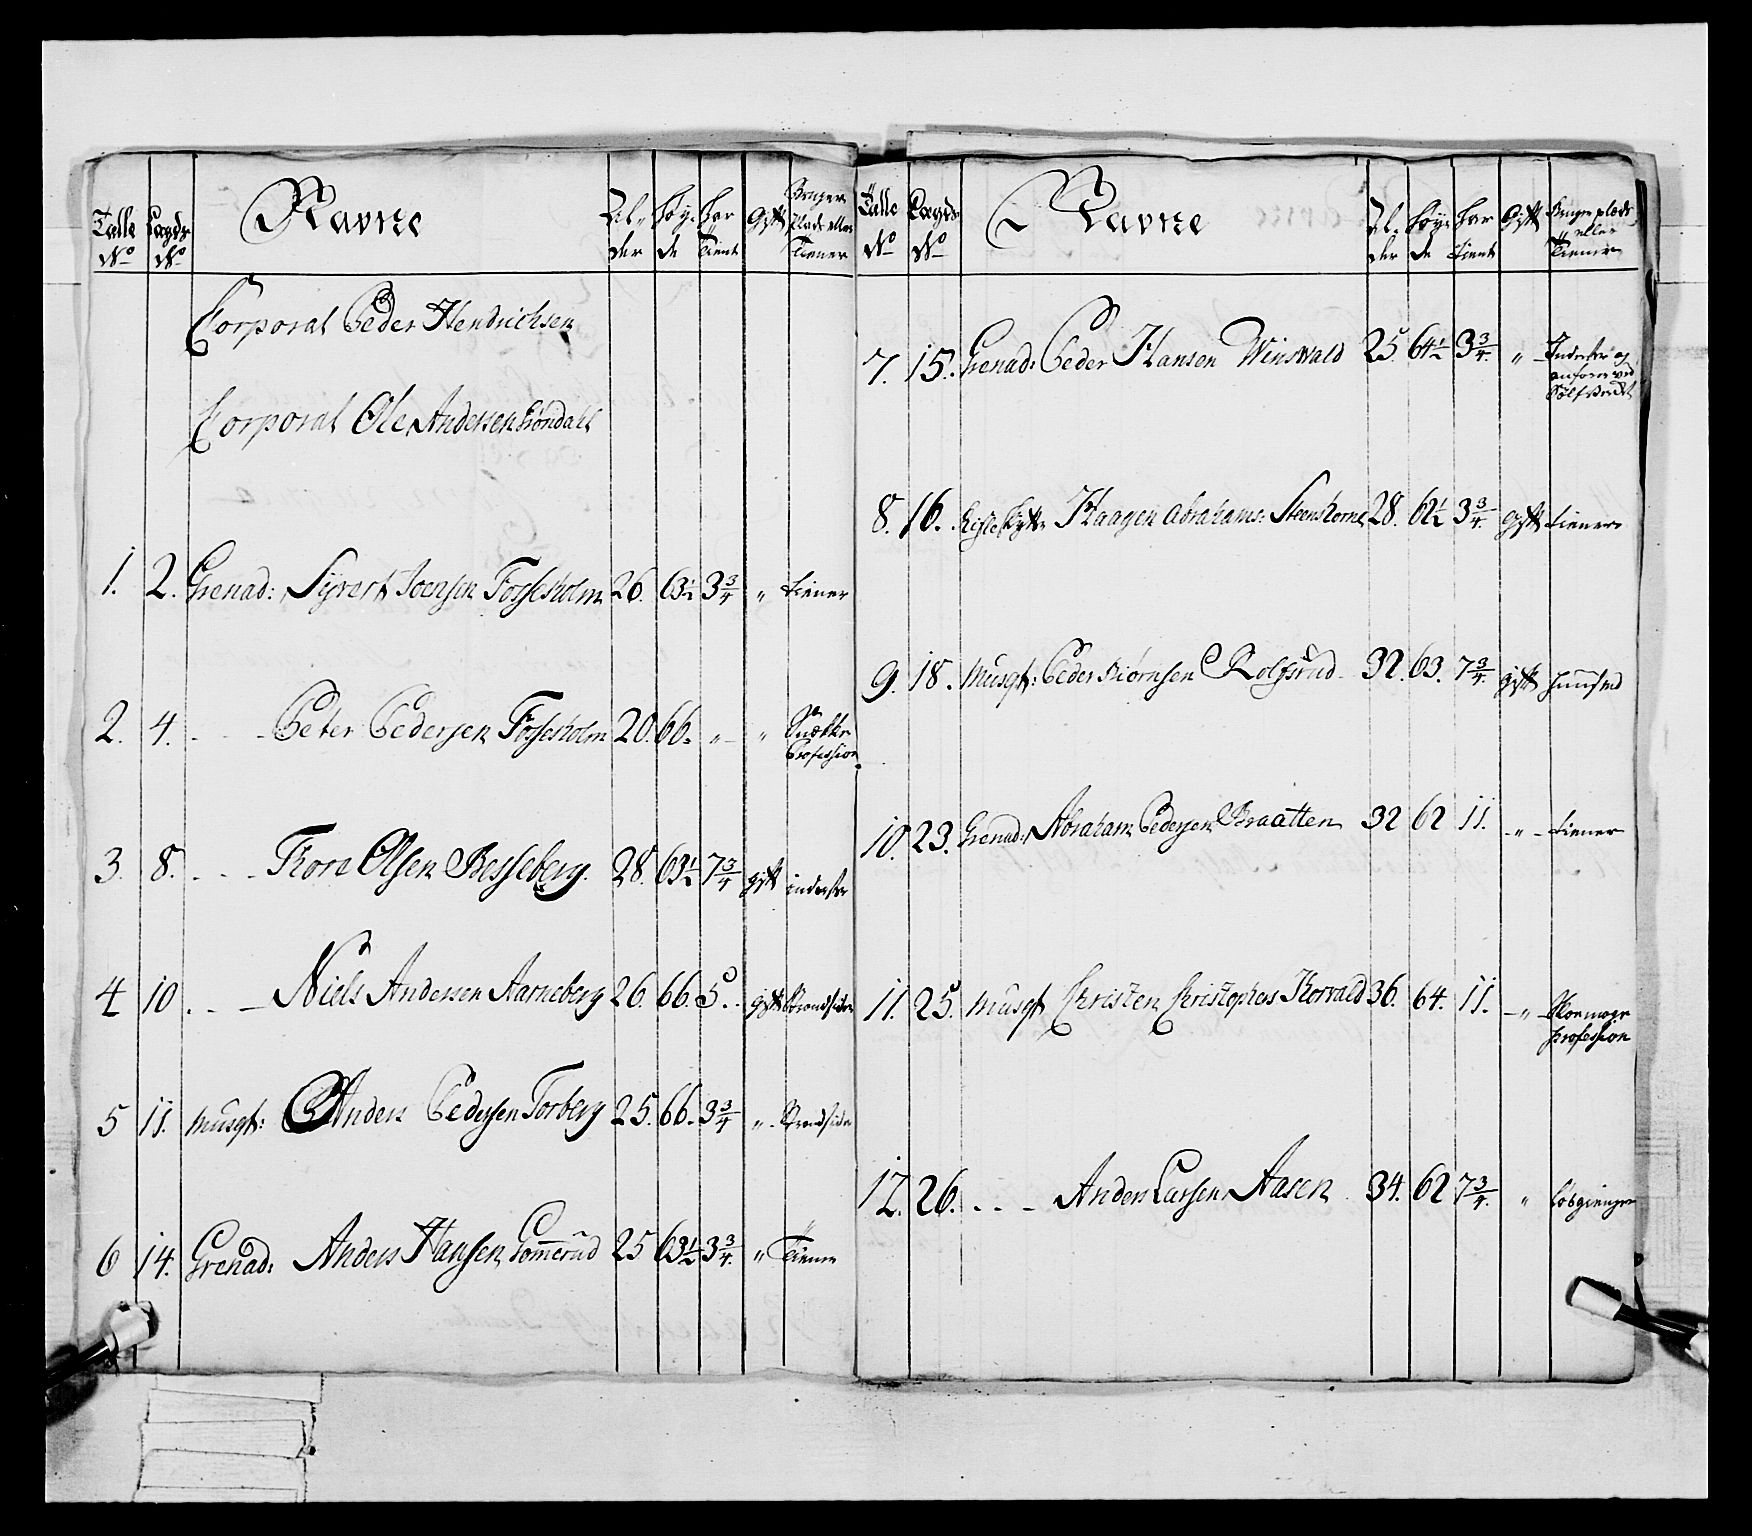 Talle No Lægds No Navne Al- der Høy- de har Tient Gift Bruger Plads eller Tiener
Corporal Peder Hendrichsen
Corporal Ole Andersen Grøndahl
1. 2. Grenad: Syvert Joensen Fossesholm 26. 63½ 3¾ " tiener
2. 4. - - - Peter Pedersen Fossesholm 20. 66. " " Snækker Profession
3. 8. - - - Thore Olsen Besseberg. 28. 63½ 7¾ gift inderste
4 10 - - - Niels Andersen Aarneberg 26. 66. 5. gift Strandsider
5 11. Musqt: Anders Pedersen Torberg 25. 66. 3¾ " Strandsider
6 14. Grenad: Anders Hansen Gommerud 25 63½ 3¾ " Tiener
Talle No Lægds No Navne Al- der Høy- de har tient Gift Bruger plads eller Tiener
7. 15. Grenad: Peder Hansen Winswald 25 64½ 3¾ " Inderste og
ved
8. 16. Haagen Abrahams: Steenshorne 28. 62½ 3¾ Gift tiener
9. 18. Musqt: Peder Biørnsen Rolfsrud 32. 63. 7¾ gift huusmd
10. 23. Grenad: Abraham Pedersen Braatten 32 62 11. " tiener
11. 25. Musqt Christen Christophers Horvald 36. 64. 11. " Skoemager profession
12. 26. - - - Anders Larsen Aasen 34. 62 7¾ " løsgienger